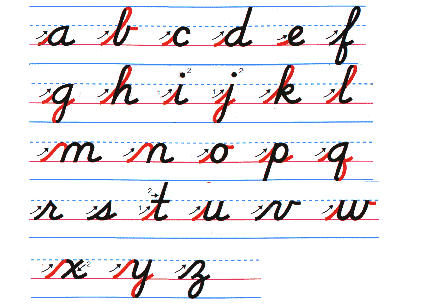 a b c d e f
g h i 2 j 2 k l
m n o p q
r s t 2 u v w
x 2 y z